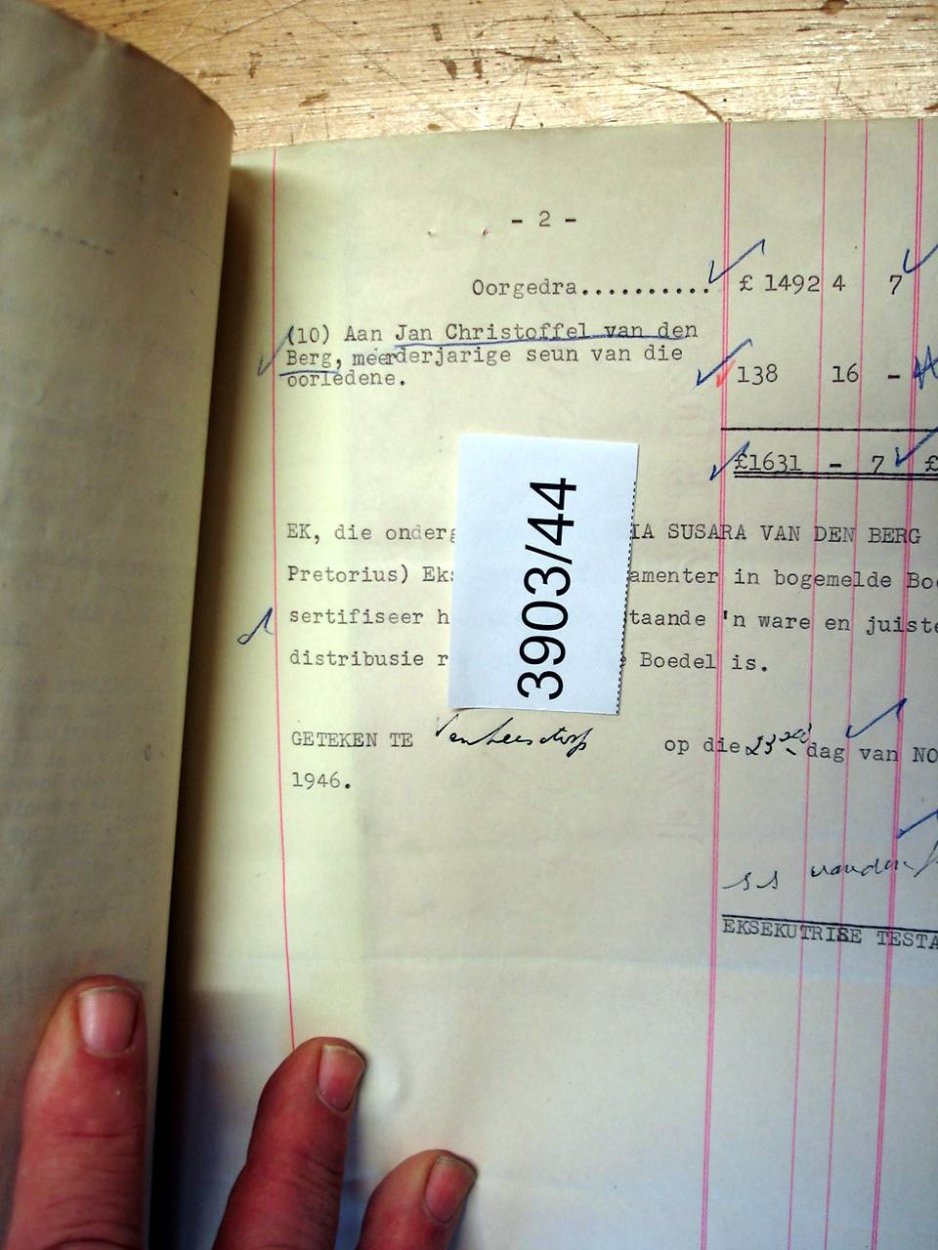 - 2 -
Oorgedra.......... £ 1492 4 7
(10) Aan Jan Christoffel van den
Berg, meerderjarige seun van die
oorledene.
138 16 -
£1631 - 7 £
3903/44
EK, die onderg IA SUSARA VAN DEN BERG
Pretorius) Eks amenter in bogemelde Boe
sertifiseer h taande 'n ware en juiste
distribusie r Boedel is.
GETEKEN TE Ventersdorp op die 23 dag van NO
1946.
EKSEKUTRISE TESTA